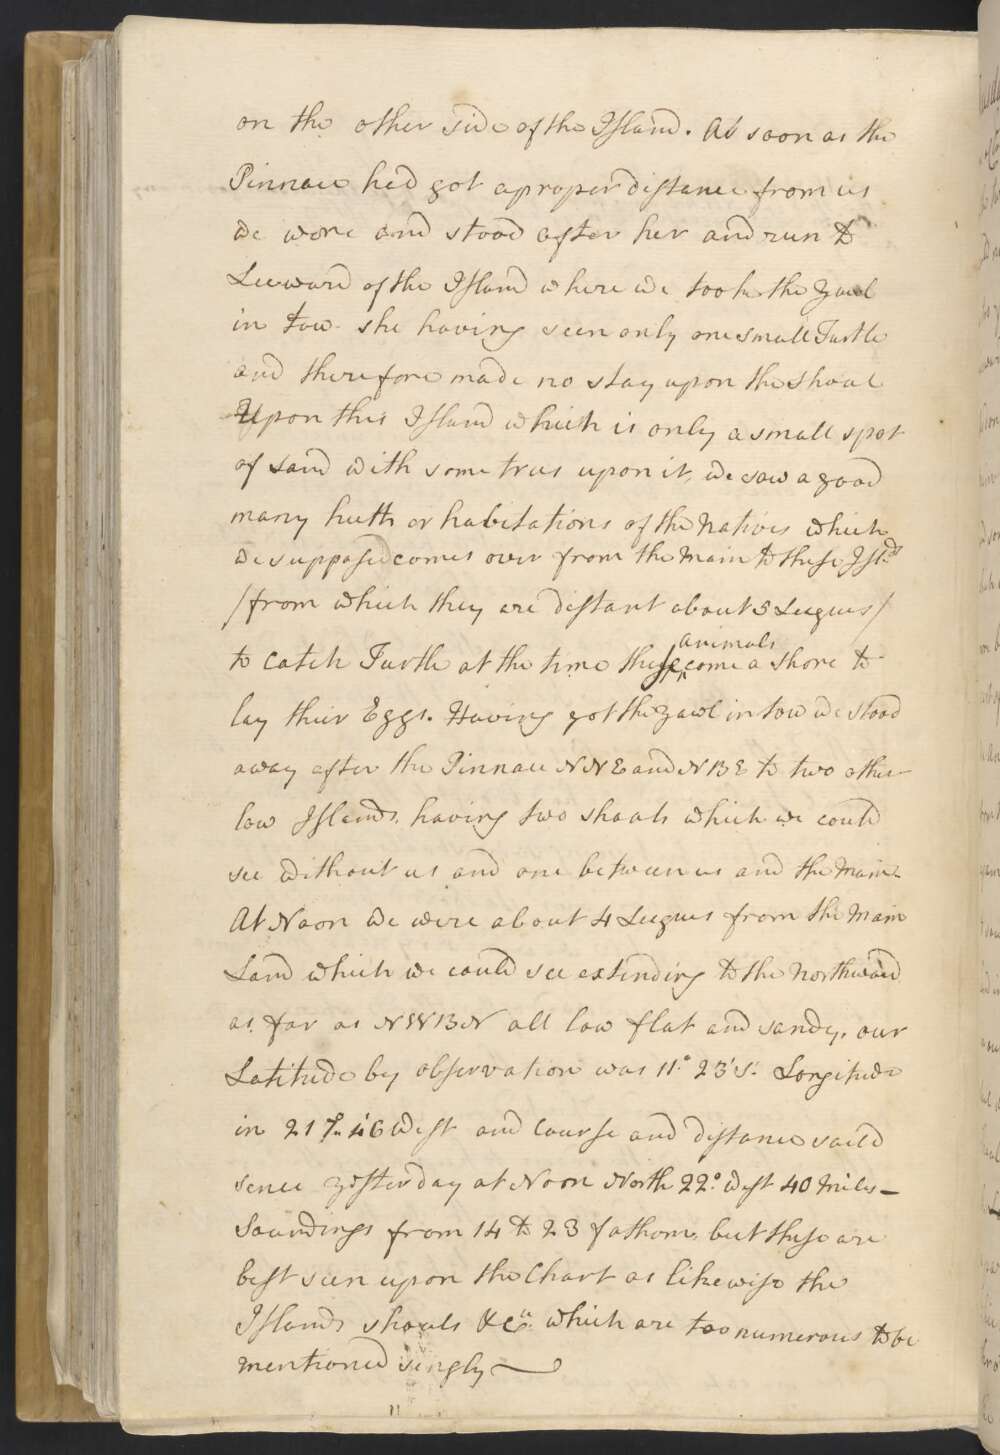 on the other side of the Island. As soon as the
Pinnace had got a proper distance from us
we wore and stood after her and run to
Leeward of the Island where we took the Yawl
in tow she having seen only one small Turtle
and therefore made no stay upon the Shoal
Upon this Island which is only a small spot
of Land with some trees upon it, we saw a good
many hutts or habitations of the Natives which
we supposed comes over from the Main to these Islds
/from which they are distant about 5 Leagues/
to Catch Turtle at the time these animals come a Shore to
lay their Eggs. Having got the Yawl in tow we stood
away after the Pinnace NNE and NBE to two other
low Islands, having two shoals which we could
see without us and one between us and the Main.
At Noon we were about 4 Leagues from the Main
Land which we could see extending to the Northward
as far as NWBN all low flat and sandy. our
Latitude by observation was 11° 23' S. Longitude
in 217..46 West and Course and distance saild
sence yesterday at Noon North 22° West 40 Miles—
Soundings from 14 to 23 fathom, but these are
best seen upon the Chart as likewise the
Islands shoals &ca which are too numerous to be
mentioned singly